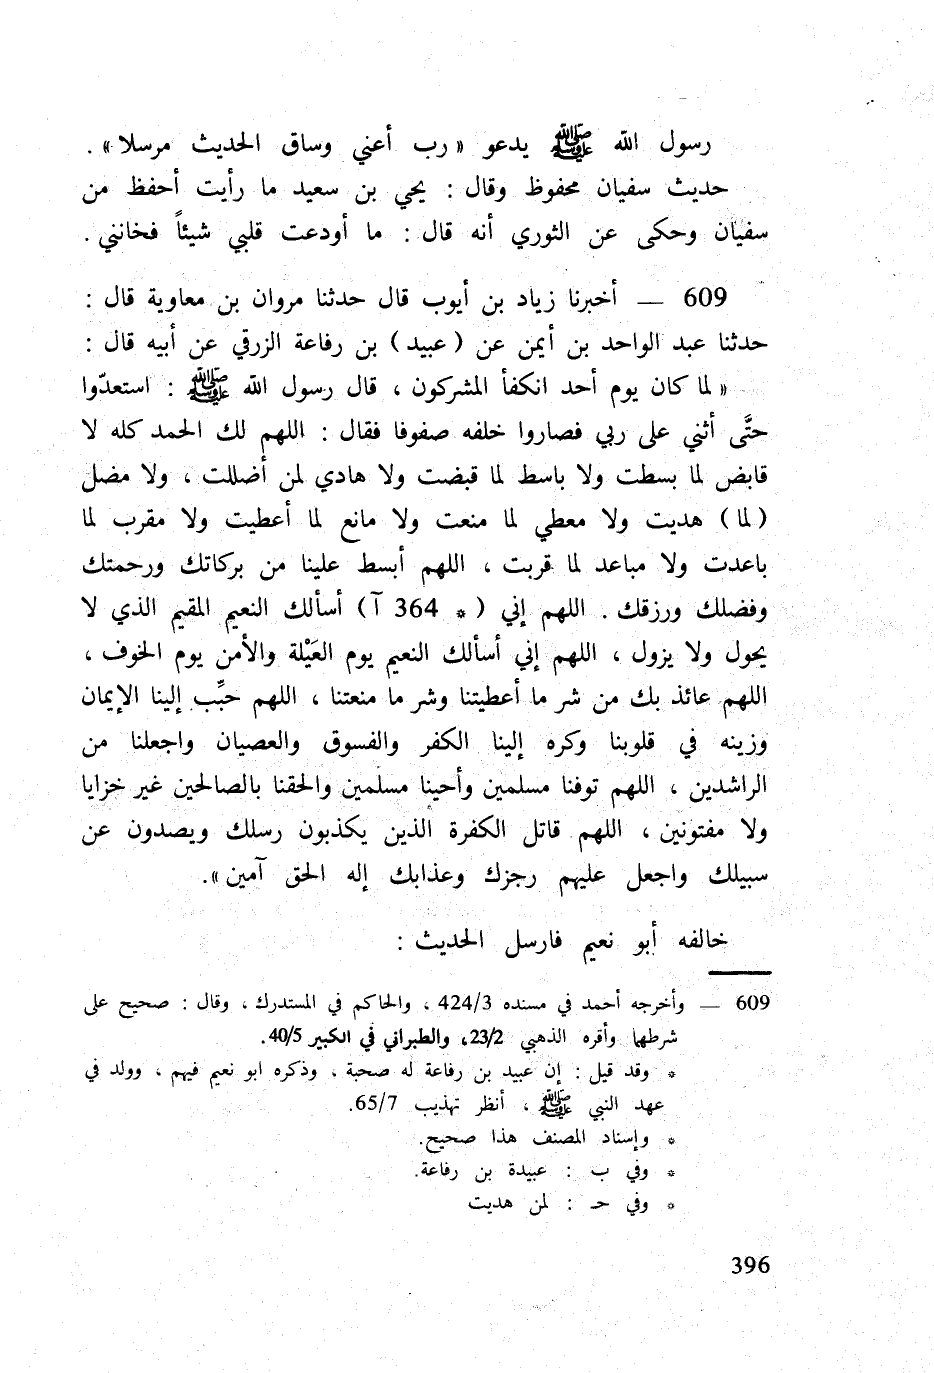 رسول الله ﷺ يدعو « رب أعني وساق الحديث مرسلا » .
حديث سفيان محفوظ وقال : يحي بن سعيد ما رأيت أحفظ من
سفيان وحكى عن الثوري أنه قال : ما أودعت قلبي شيئاً فخانني .
609 — أخبرنا زياد بن أيوب قال حدثنا مروان بن معاوية قال :
حدثنا عبد الواحد بن أيمن عن ( عبيد ) بن رفاعة الزرقي عن أبيه قال :
« لما كان يوم أحد انكفأ المشركون ، قال رسول الله ﷺ : استعدّوا
حتَّى أثني على ربي فصاروا خلفه صفوفا فقال : اللهم لك الحمد كله لا
قابض لما بسطت ولا باسط لما قبضت ولا هادي لمن أضللت ، ولا مضل
( لما ) هديت ولا معطي لما منعت ولا مانع لما أعطيت ولا مقرب لما
باعدت ولا مباعد لما قربت ، اللهم أبسط علينا من بركاتك ورحمتك
وفضلك ورزقك . اللهم إني ( * 364 آ ) أسألك النعيم المقيم الذي لا
يحول ولا يزول ، اللهم إني أسألك النعيم يوم العَيْلة والأمن يوم الخوف ،
اللهم عائذ بك من شر ما أعطيتنا وشر ما منعتنا ، اللهم حبِّب إلينا الإيمان
وزينه في قلوبنا وكره إلينا الكفر والفسوق والعصيان واجعلنا من
الراشدين ، اللهم توفنا مسلمين وأحينا مسلمين والحقنا بالصالحين غير خزايا
ولا مفتونين ، اللهم قاتل الكفرة الذين يكذبون رسلك ويصدون عن
سبيلك واجعل عليهم رجزك وعذابك إله الحق آمين ».
خالفه أبو نعيم فارسل الحديث :
609 — وأخرجه أحمد في مسنده 424/3 ، والحاكم في المستدرك ، وقال : صحيح على
شرطهما وأقره الذهبي 23/2، والطبراني في الكبير 40/5.
* وقد قيل : إن عبيد بن رفاعة له صحبة ، وذكره ابو نعيم فيهم ، وولد في
عهد النبي ﷺ ، أنظر تهذيب 65/7.
* وإسناد المصنف هذا صحيح.
* وفي ب : عبيدة بن رفاعة.
* وفي حـ : لمن هديت
396